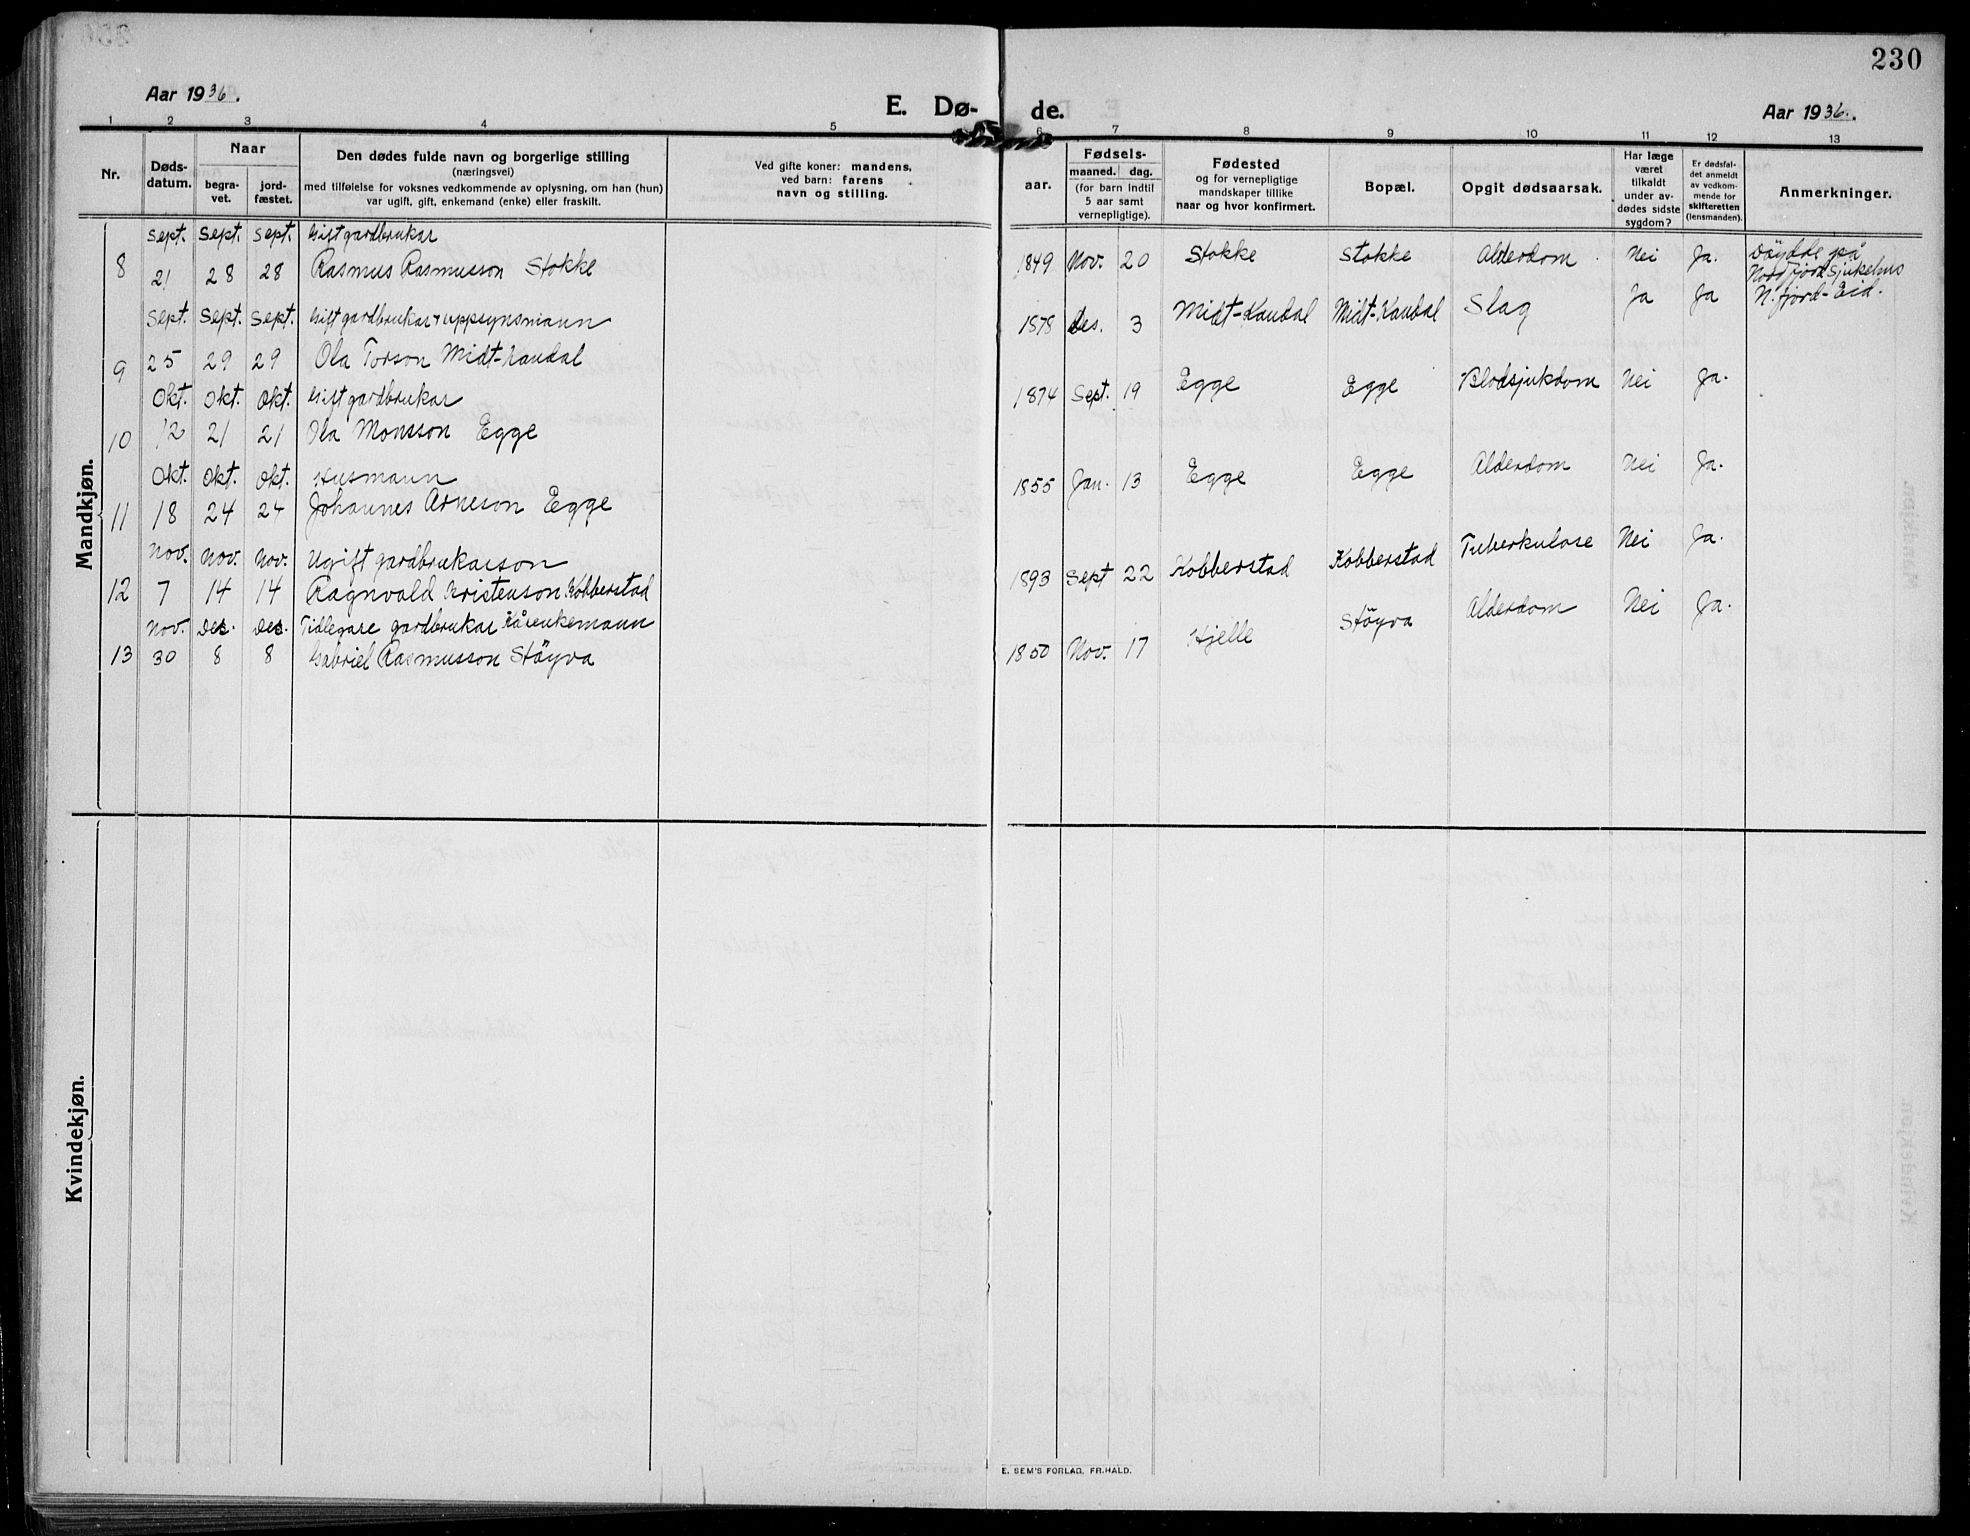 230
Aar 1936.
E. Dø-
de.
Aar 1936.
1 2 3 4 5 6 7 8 9 10 11 12 13
Nr.
Døds-
datum.
Naar
begra-
vet.
jord-
fæstet.
Den dødes fulde navn og borgerlige stilling
(næringsvei)
med tilføielse for voksnes vedkommende av oplysning, om han (hun)
var ugift, gift, enkemand (enke) eller fraskilt.
Ved gifte koner: mandens,
ved barn: farens
navn og stilling.
aar.
Fødsels-
maaned. dag.
(for barn indtil
5 aar samt
vernepligtige).
Fødested
og for vernepligtige
mandskaper tillike
naar og hvor konfirmert.
Bopæl.
Opgit dødsaarsak.
Har læge
været
tilkaldt
under av-
dødes sidste
sygdom?
Er dødsfal-
det anmeldt
av vedkom-
mende for
skifteretten
(lensmanden).
Anmerkninger.
Mandkjøn.
Sept. Sept. Sept. Gift gardbrukar
8 21 28 28 Rasmus Rasmusson Stokke 1849 Nov. 20 Stokke Stokke Alderdom Nei Ja.
Sept. Sept. Sept. Gift gardbrukar + uppsynsmann
9 25 29 29 Ola Torson Midt-Kandal 1878 Des. 3 Midt-Kandal Midt-Kandal Slag Ja Ja
Døydde på
Nordfjord sjukehus
N.fjord-Eid.
Okt. Okt. Okt. Gift gardbrukar
10 12 21 21 Ola Monsson Egge 1874 Sept. 19 Egge Egge Blodsjukdom Nei Ja.
Okt. Okt. Okt. Husmann
11 18 24 24 Johannes Arneson Egge 1855 Jan. 13 Egge Egge Alderdom Nei Ja.
Nov. Nov. Nov. Ugift gardbrukarson
12 7 14 14 Ragnvald Kristenson Kobberstad 1893 Sept 22 Kobberstad Kobberstad Tuberkulose Nei Ja.
Nov. Des. Des. Tidlegare gardbrukar kår enkemann
13 30 8 8 Gabriel Rasmusson Støyva 1850 Nov. 17 Hjelle Støyva Alderdom Nei Ja.
Kvindekjøn.
E. SEM'S FORLAG, FR.HALD.